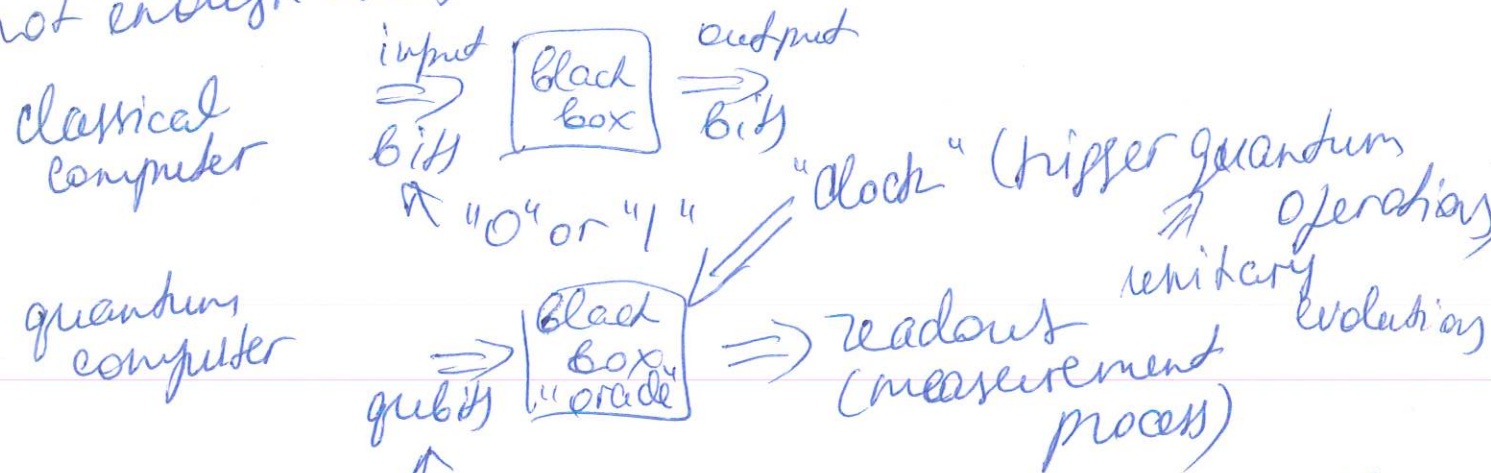 not enough
classical computer
input
bits
black box
output
bits
"0" or "1"
"clock" (trigger quantum operations
unitary evolution
quantum computer
qubits
black box "oracle"
readout
(measurement process)